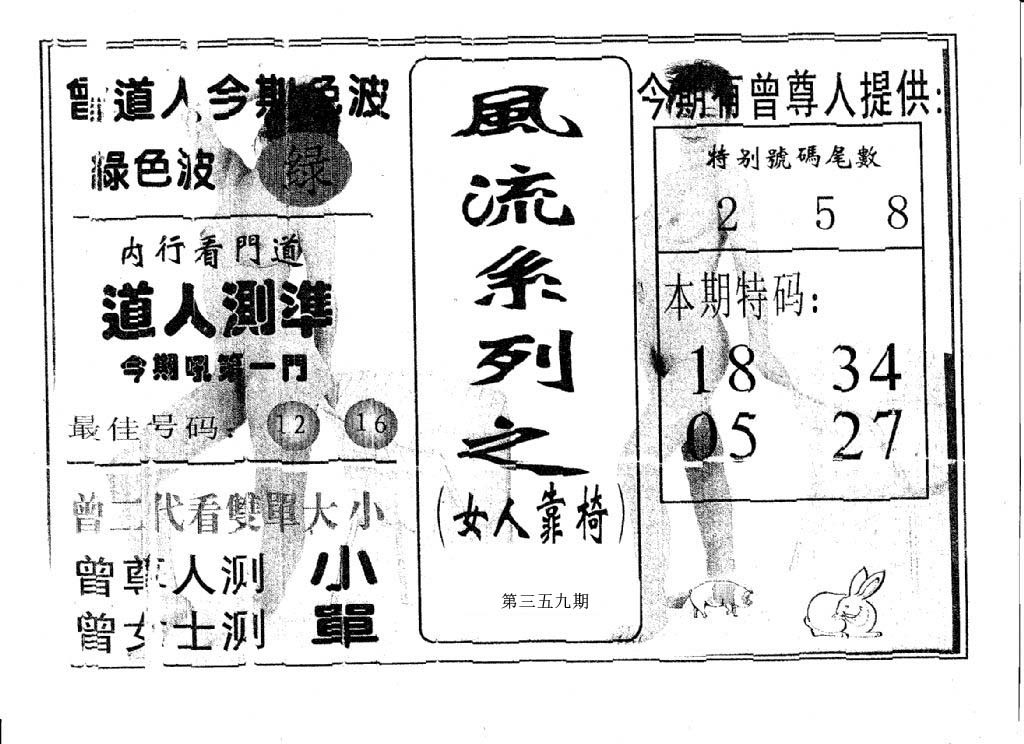 曾道人今期色波
綠色波 綠
内行看門道
道人測準
今期吼第一門
最佳号码: 12 16
曾二代看雙單大小
曾尊人测 小
曾女士测 單
風流系列之
(女人靠椅)
第三五九期
今期有曾尊人提供:
特别號碼尾數
2 5 8
本期特码:
18 34
05 27